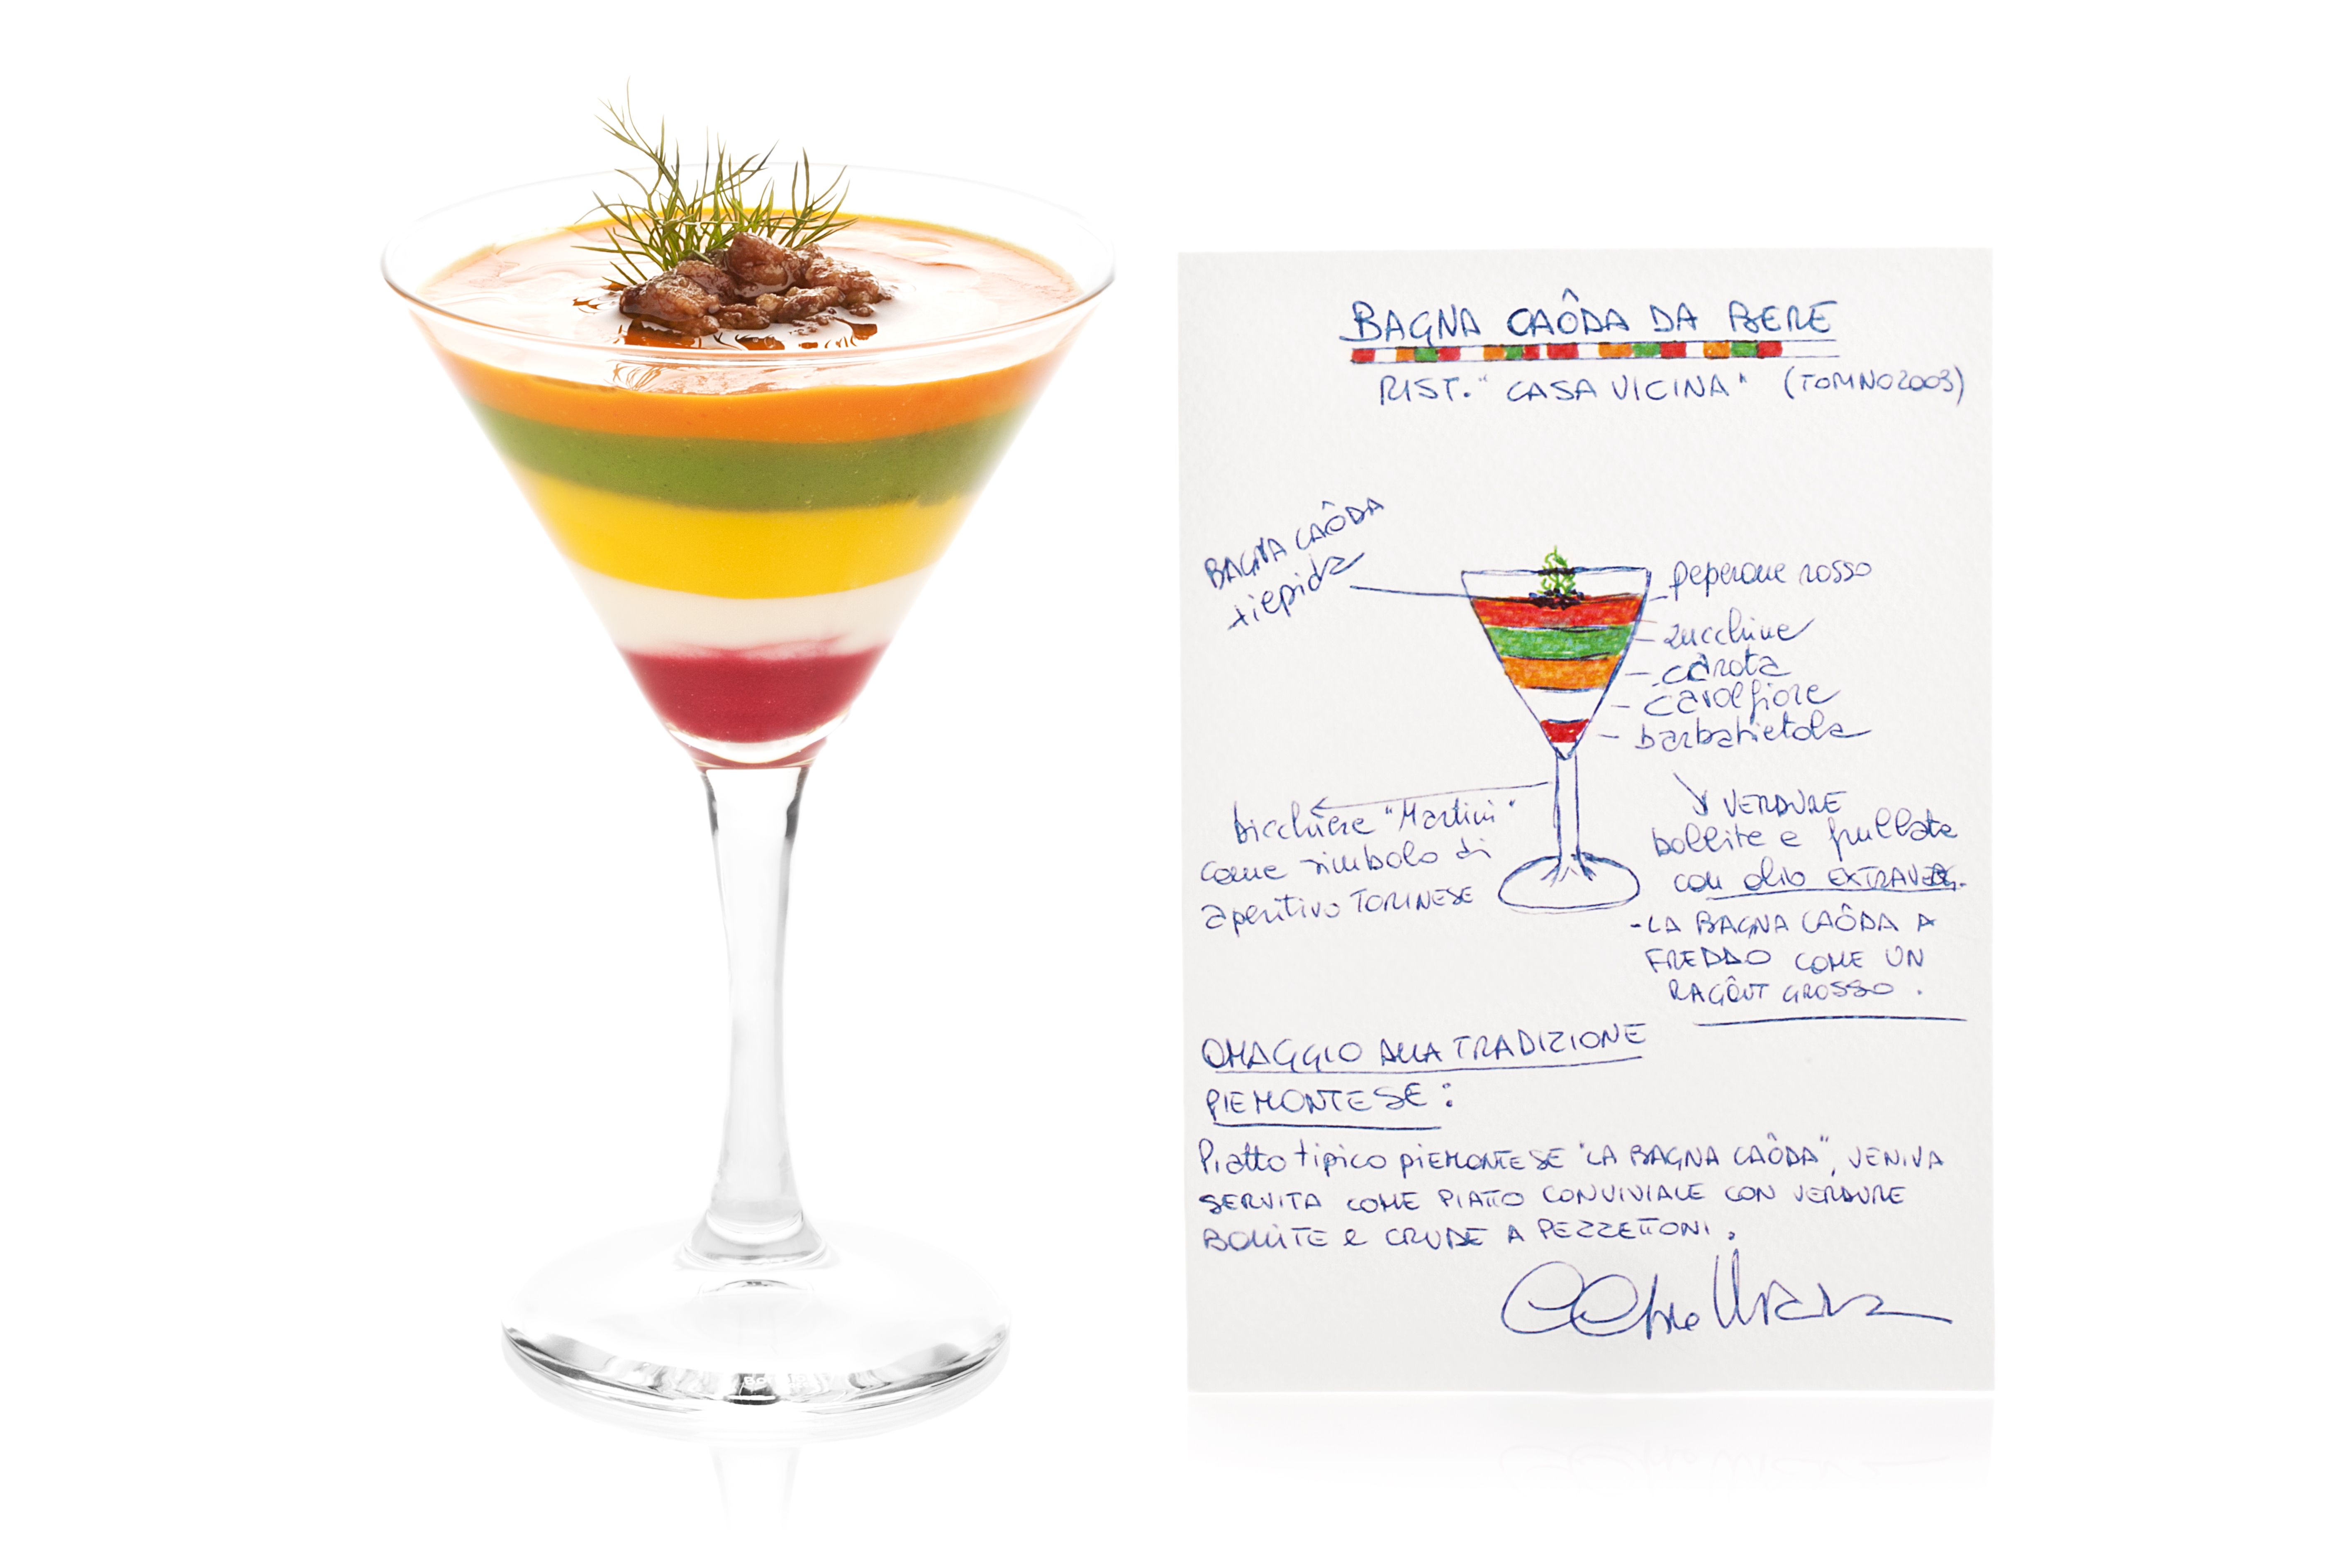 BAGNA CAÔDA DA BERE
RIST. "CASA VICINA" (TORINO 2003)
BAGNA CAÔDA
tiepida
peperone rosso
zucchine
carota
cavolfiore
barbabietola
bicchiere "Martini"
come simbolo di
aperitivo TORINESE
VERDURE
bollite e frullate
con olio EXTRAVERG.
- LA BAGNA CAÔDA A
FREDDO COME UN
RAGÔUT GROSSO.
OMAGGIO ALLA TRADIZIONE
PIEMONTESE:
Piatto tipico PIEMONTESE "LA BAGNA CAÔDA", VENIVA
SERVITA COME PIATTO CONVIVIALE CON VERDURE
BOLLITE e CRUDE A PEZZETTONI.